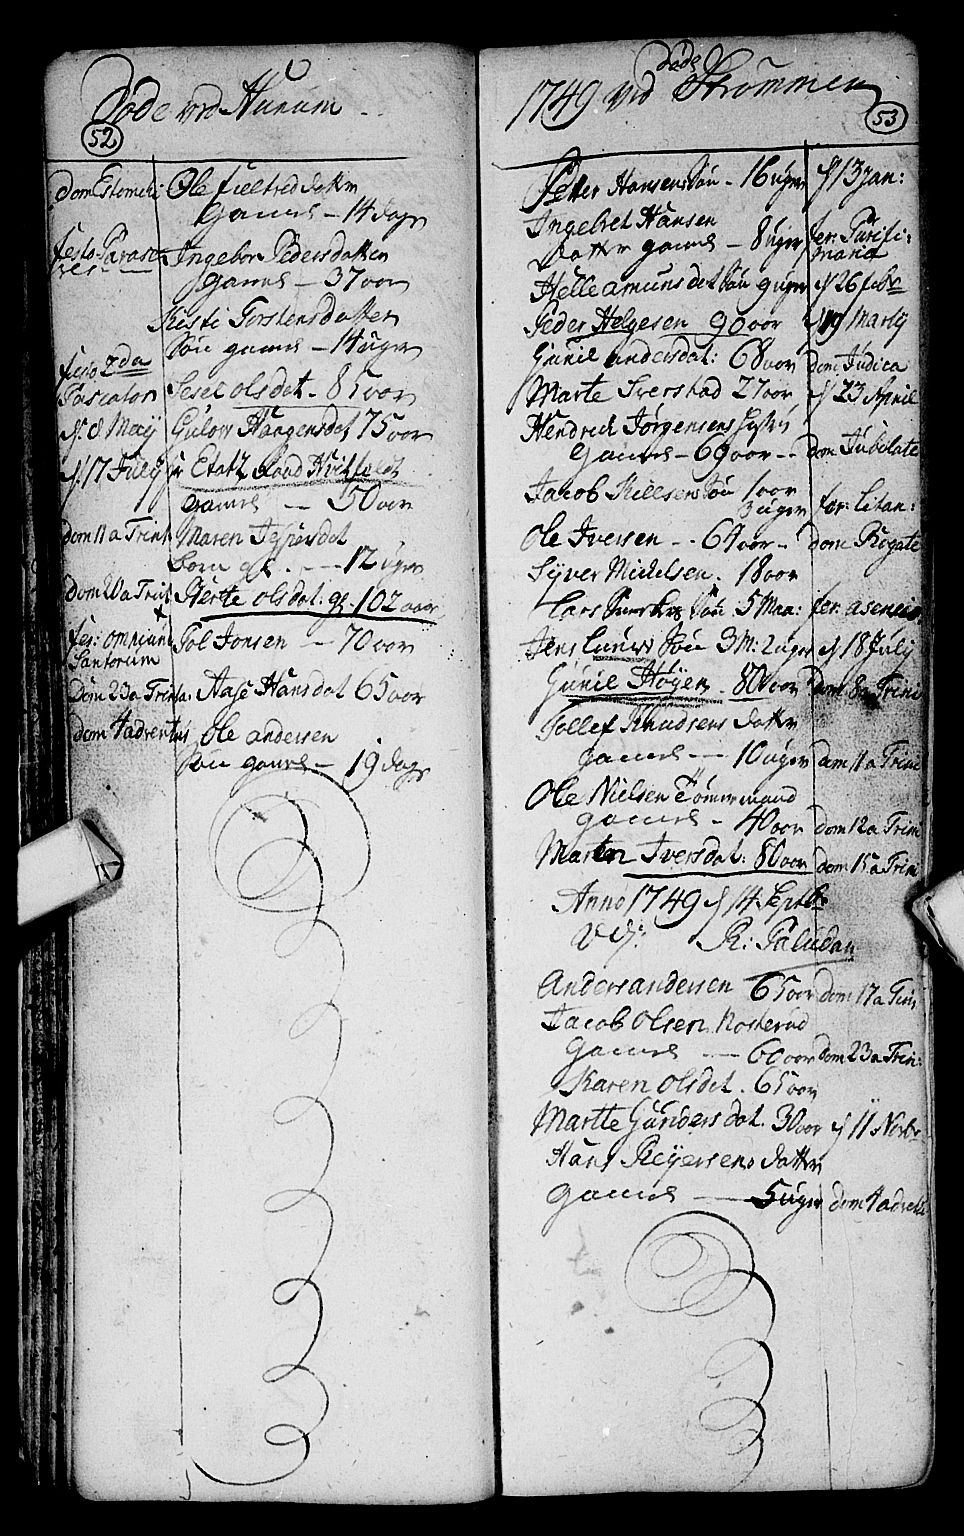 Døde ved Hurum
52
dom Estomihi: Ole fieltred datter
gamel – 14 dage
festo Parasc: Ingebor Pedersdatter
gamel – 37 aar
Kisti Torstensdatter
Søn gamel – 14 uger
festo 2da
Pascatos Sesel olsdat. 85 aar
d. 8 Maij Gulow Haagensdat 75 aar
d. 17 July Etatz Raad Hvitfeldt
gamel — 50 aar
dom 11 a Trinit Maren Jespersdat
barn gl. — 12 uger
dom 20 a Trinit Bierte olsdat: gl. 102 aar
fer: omnium Tol Jonsen — 70 aar
Santorum
Dom 23 a Trinita: Aase Hansdat 65 aar
dom 4 adventus Ole andersen
Søn gamel – 19 dage
døde
1749 ved Strømmen
53
Peter Hansens Søn – 16 uger d 13 jan:
Ingebret Hansen
datter gamel – 8 uger fer: Purifi:
maria
Helle amunsdat Søn 9 uger d 26 febr
Peder Helgesen 90 aar d 19 Martij
Gunil andersdat: 68 aar dom: Judica
Marte Sverstad 27 aar d 23 April
Hendrich Jørgensens
gamel – 69 aar – dom Jubilate
Jacob Nielsens Søn 1 aar
3 uger fer: Litan:
Ole Iversen – 69 aar – dom Rogate
Syver Mickelsen. 18 aar
Lars Søn 5 Maa: fer: asensio
Jens Søn 3 M: 2 uger d 18 July
Gunil Høyen 80 aar dom 8 a Trini
Tollef Knudsens datter
gamel — 10 uger dom 11 a Trini
Ole Nielsen Tømermand
gamel – 40 aar dom 12 a Trini
Marten Iversdat: 80 aar dom 15 a Trini
Anno 1749 d 14 Septbr
R: Paludan
Anders andersen 65 aar dom 17 a Trin
Jacob Olsen Rosterud
Gamel — 60 aar dom 23 a Trin:
Karen olsdat. 65 aar
Martte Gundersdat. 30 aar d 11 Novbr
Hans Reyersens datter
gamel — 5 uger dom 4 advent